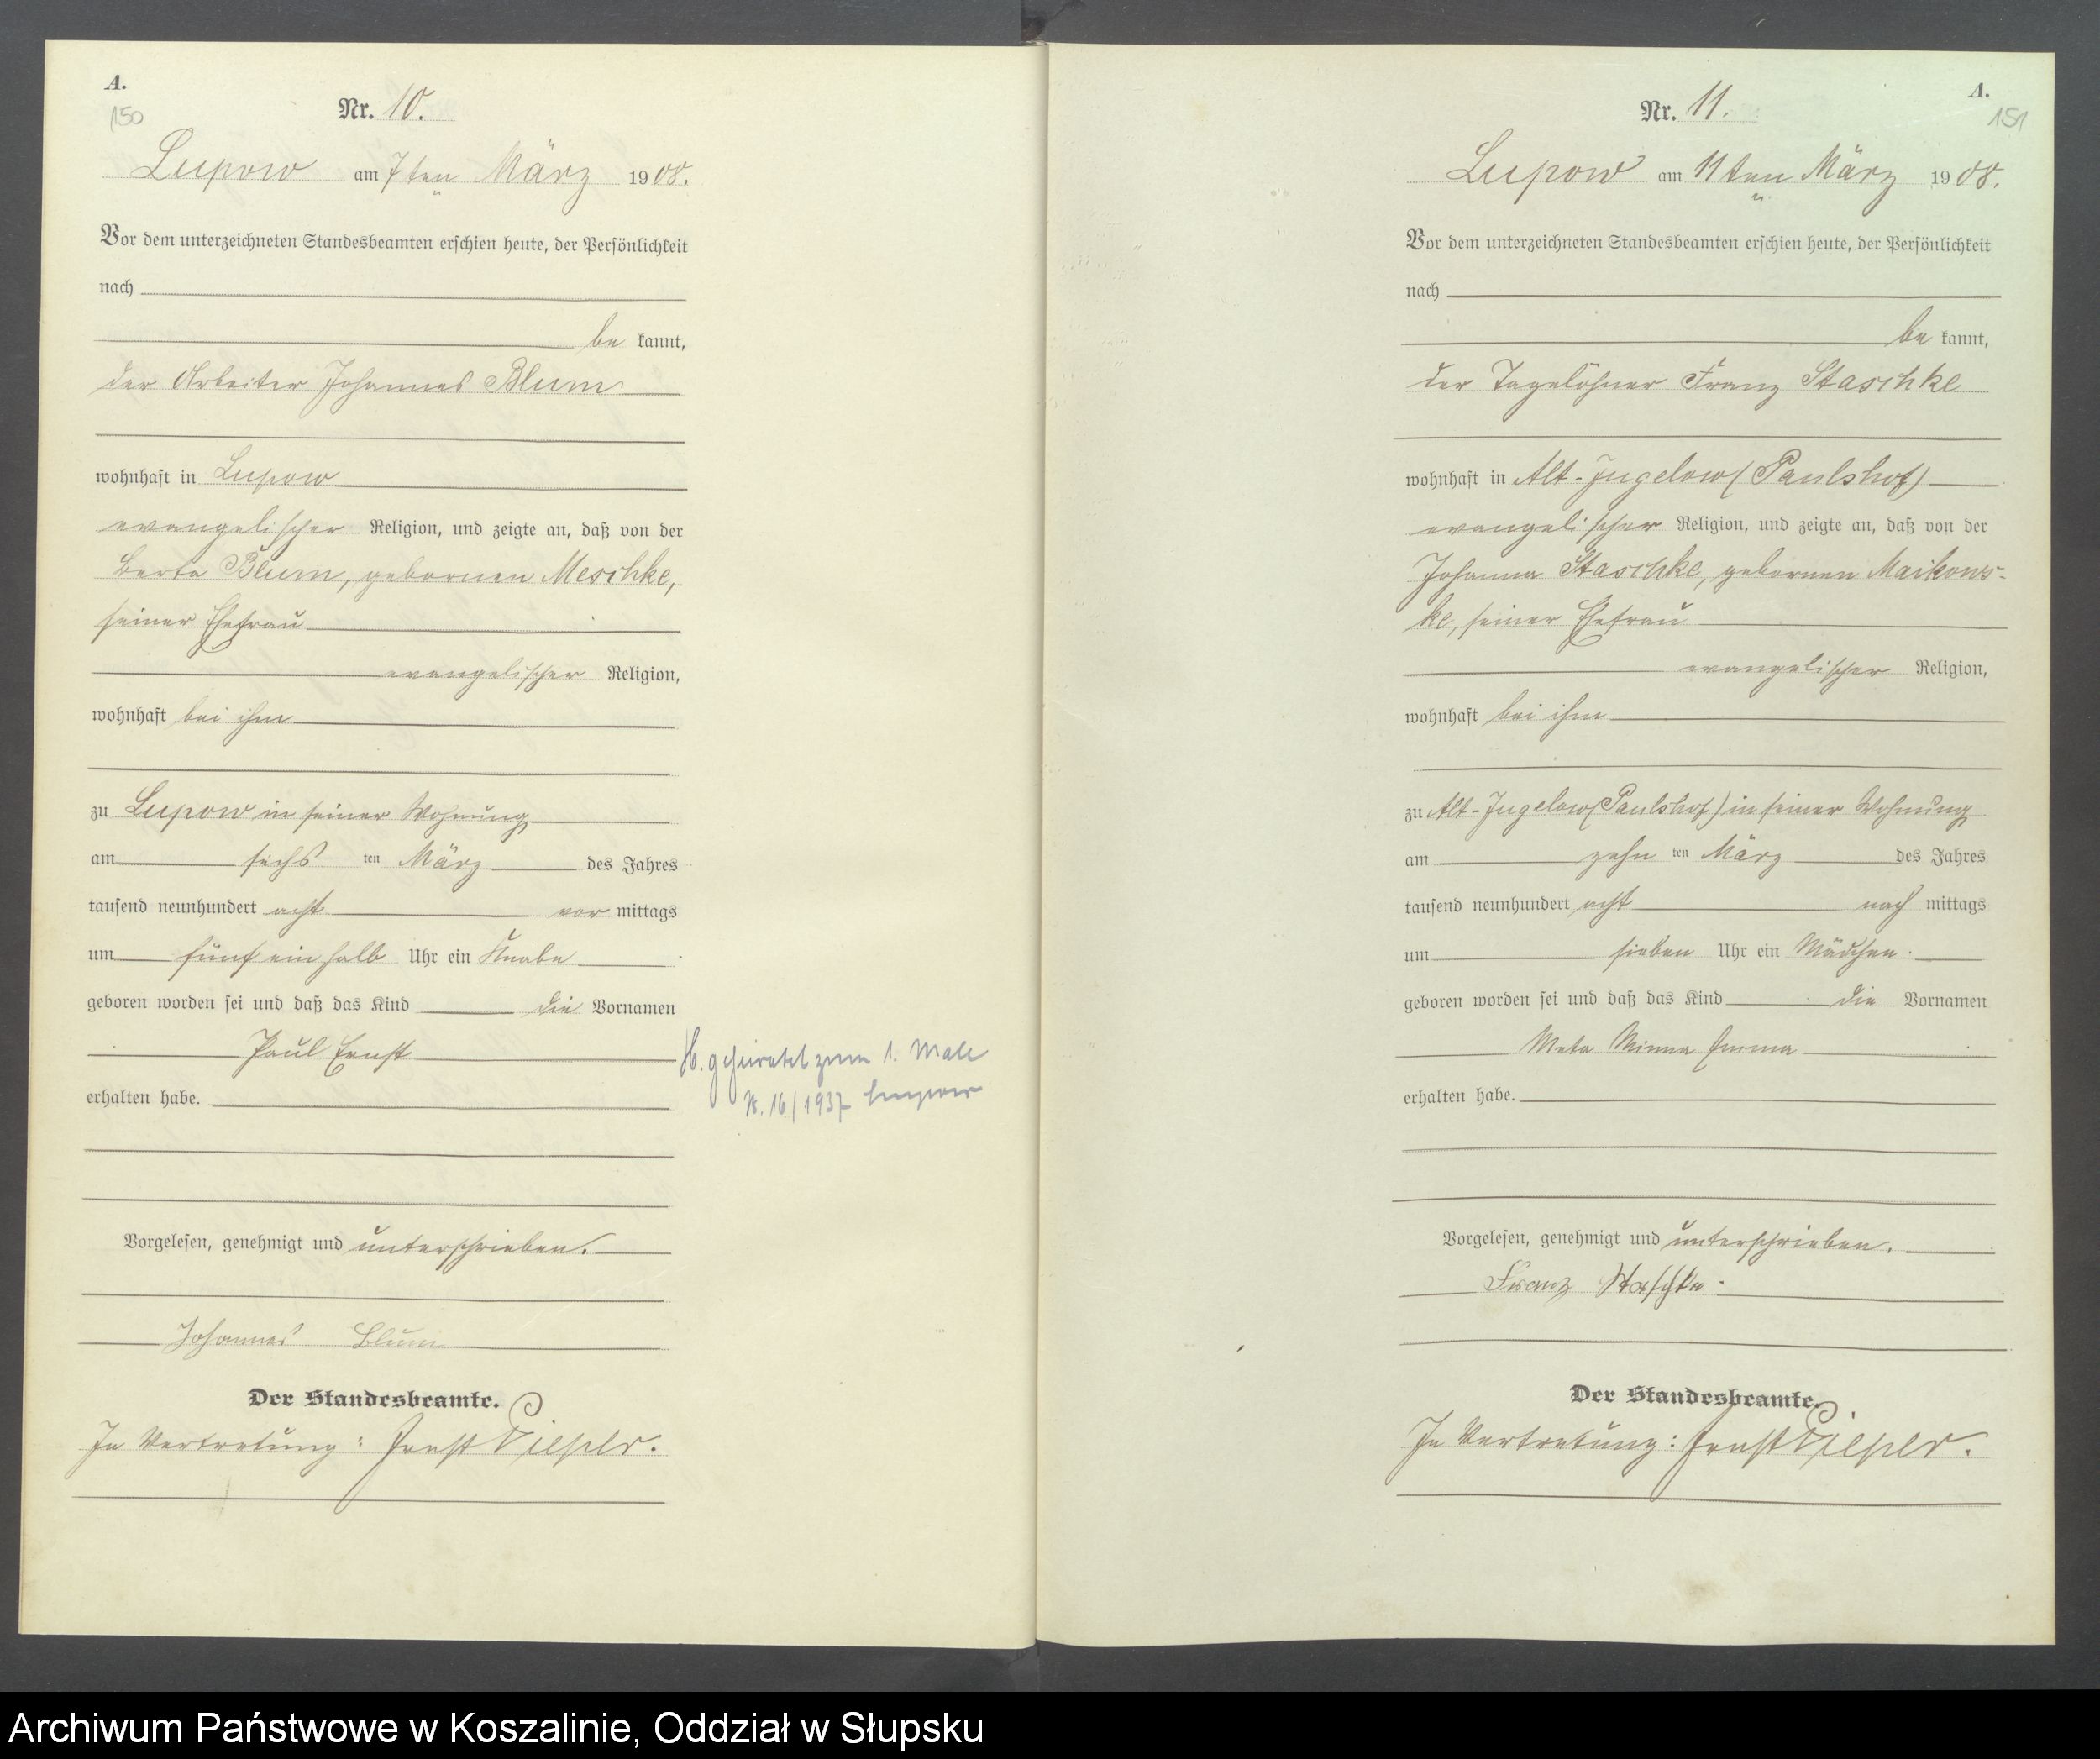 A.
150
Nr. 10.
Lupow am 7ten März 1908.
Vor dem unterzeichneten Standesbeamten erschien heute, der Persönlichkeit
nach
be kannt,
der Arbeiter Johannes Blum
wohnhaft in Lupow
evangelischer Religion, und zeigte an, daß von der
Berta Blum, gebornen Meschke,
seiner Ehefrau
evangelischer Religion,
wohnhaft bei ihm
zu Lupow in seiner Wohnung
am sechs ten März des Jahres
tausend neunhundert acht vor mittags
um fünf ein halb Uhr ein Knabe
geboren worden sei und daß das Kind die Vornamen
Paul Ernst
erhalten habe.
H. geheiratet zum 1. Male
N. 16/1937 Lupow
Vorgelesen, genehmigt und unterschrieben.
Johannes Blum
Der Standesbeamte.
In Vertretung: Ernst Pieper.
A.
151
Nr. 11.
Lupow am 11ten März 1908.
Vor dem unterzeichneten Standesbeamten erschien heute, der Persönlichkeit
nach
be kannt,
der Tagelöhner Franz Staschke
wohnhaft in Alt-Jugelow (Paulshof)
evangelischer Religion, und zeigte an, daß von der
Johanna Staschke, gebornen Maikows-
ke, seiner Ehefrau
evangelischer Religion,
wohnhaft bei ihm
zu Alt-Jugelow (Paulshof) in seiner Wohnung
am zehn ten März des Jahres
tausend neunhundert acht nach mittags
um sieben Uhr ein Mädchen
geboren worden sei und daß das Kind die Vornamen
Meta Minna Emma
erhalten habe.
Vorgelesen, genehmigt und unterschrieben.
Franz Staschke
Der Standesbeamte.
In Vertretung: Ernst Pieper.
Archiwum Państwowe w Koszalinie, Oddział w Słupsku